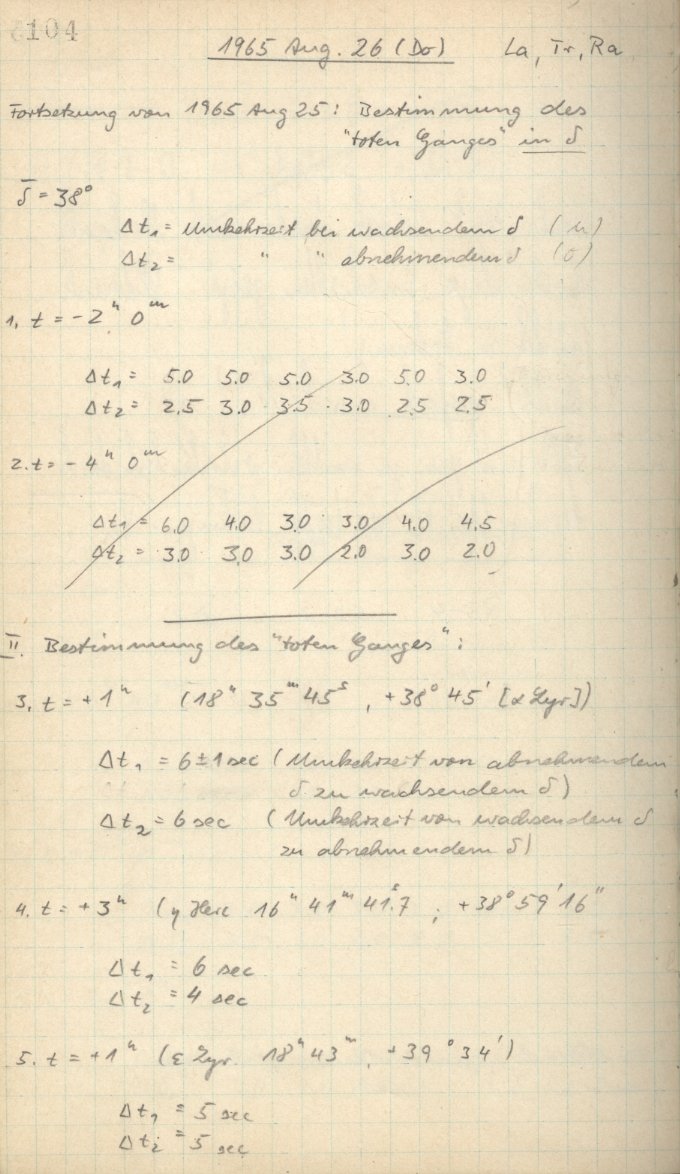 104
1965 Aug. 26 (Do) La, Tr, Ra
Fortsetzung von 1965 Aug 25: Bestimmung des
"toten Ganges" in δ
δ̅ = 38°
Δt₁ = Umkehrzeit bei wachsendem δ (u)
Δt₂ = " " abnehmendem δ (o)
1. t = -2ʰ 0ᵐ
Δt₁ = 5.0 5.0 5.0 3.0 5.0 3.0
Δt₂ = 2.5 3.0 3.5 3.0 2.5 2.5
2. t = -4ʰ 0ᵐ
Δt₁ = 6.0 4.0 3.0 3.0 4.0 4.5
Δt₂ = 3.0 3.0 3.0 2.0 3.0 2.0
II. Bestimmung des "toten Ganges":
3. t = +1ʰ (18ʰ 35ᵐ 45ˢ, +38° 45' [α Lyr])
Δt₁ = 6 ± 1 sec (Umkehrzeit von abnehmendem
δ zu wachsendem δ)
Δt₂ = 6 sec (Umkehrzeit von wachsendem δ
zu abnehmendem δ)
4. t = +3ʰ (η Herc 16ʰ 41ᵐ 41ˢ.7 ; +38° 59' 16"
Δt₁ = 6 sec
Δt₂ = 4 sec
5. t = +1ʰ (ε Lyr. 18ʰ 43ᵐ, +39° 34')
Δt₁ = 5 sec
Δt₂ = 5 sec